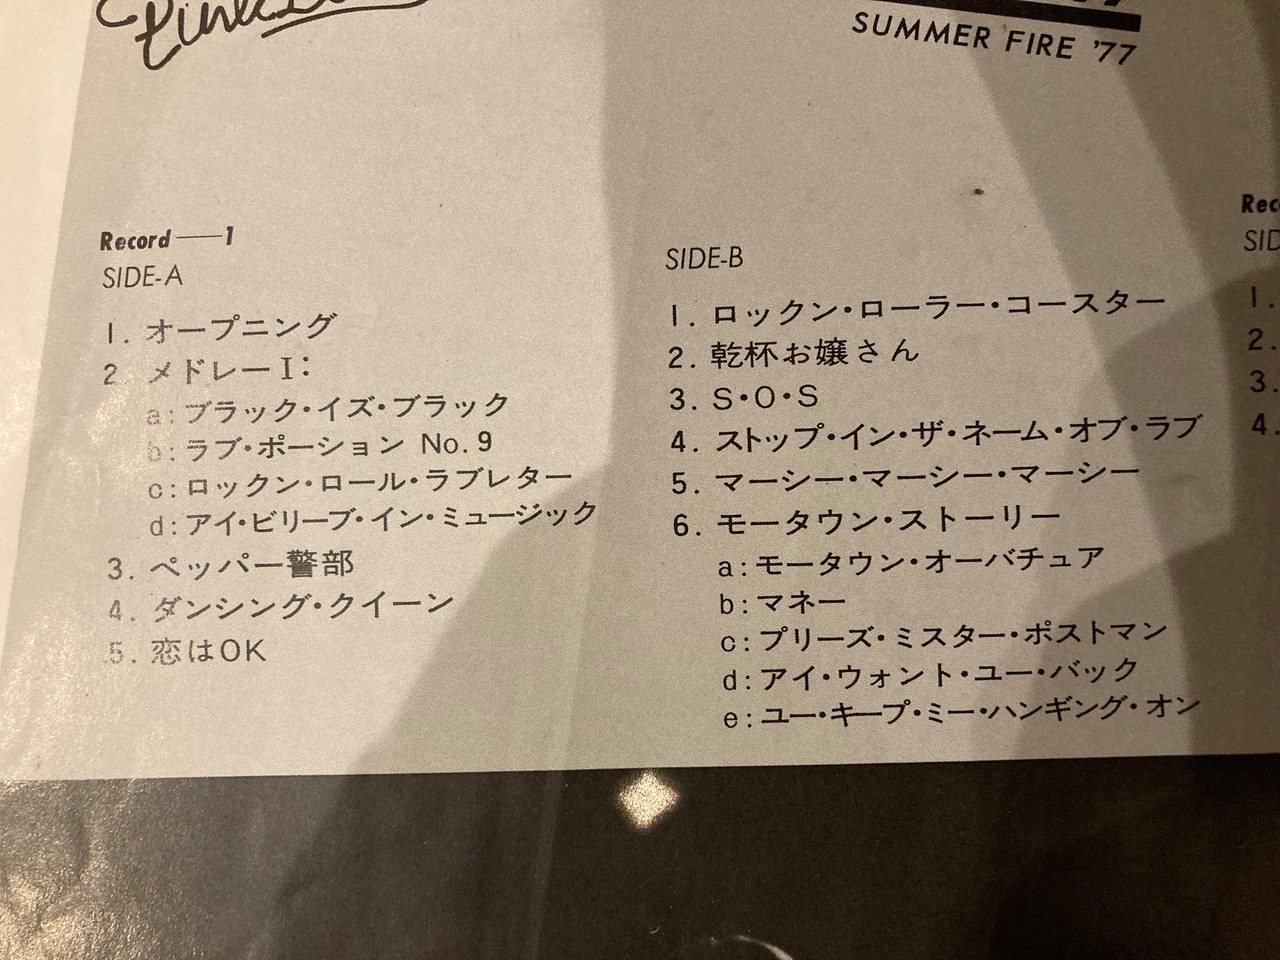 SUMMER FIRE '77
Record——1
SIDE-A
1. オープニング
2 メドレーI:
a: ブラック・イズ・ブラック
b: ラブ・ポーション No. 9
c: ロックン・ロール・ラブレター
d: アイ・ビリーブ・イン・ミュージック
3. ペッパー警部
4. ダンシング・クイーン
5. 恋はOK
SIDE-B
1. ロックン・ローラー・コースター
2. 乾杯お嬢さん
3. S・O・S
4. ストップ・イン・ザ・ネーム・オブ・ラブ
5. マーシー・マーシー・マーシー
6. モータウン・ストーリー
a: モータウン・オーバチュア
b: マネー
c: プリーズ・ミスター・ポストマン
d: アイ・ウォント・ユー・バック
e: ユー・キープ・ミー・ハンギング・オン
1.
2.
3.
4.